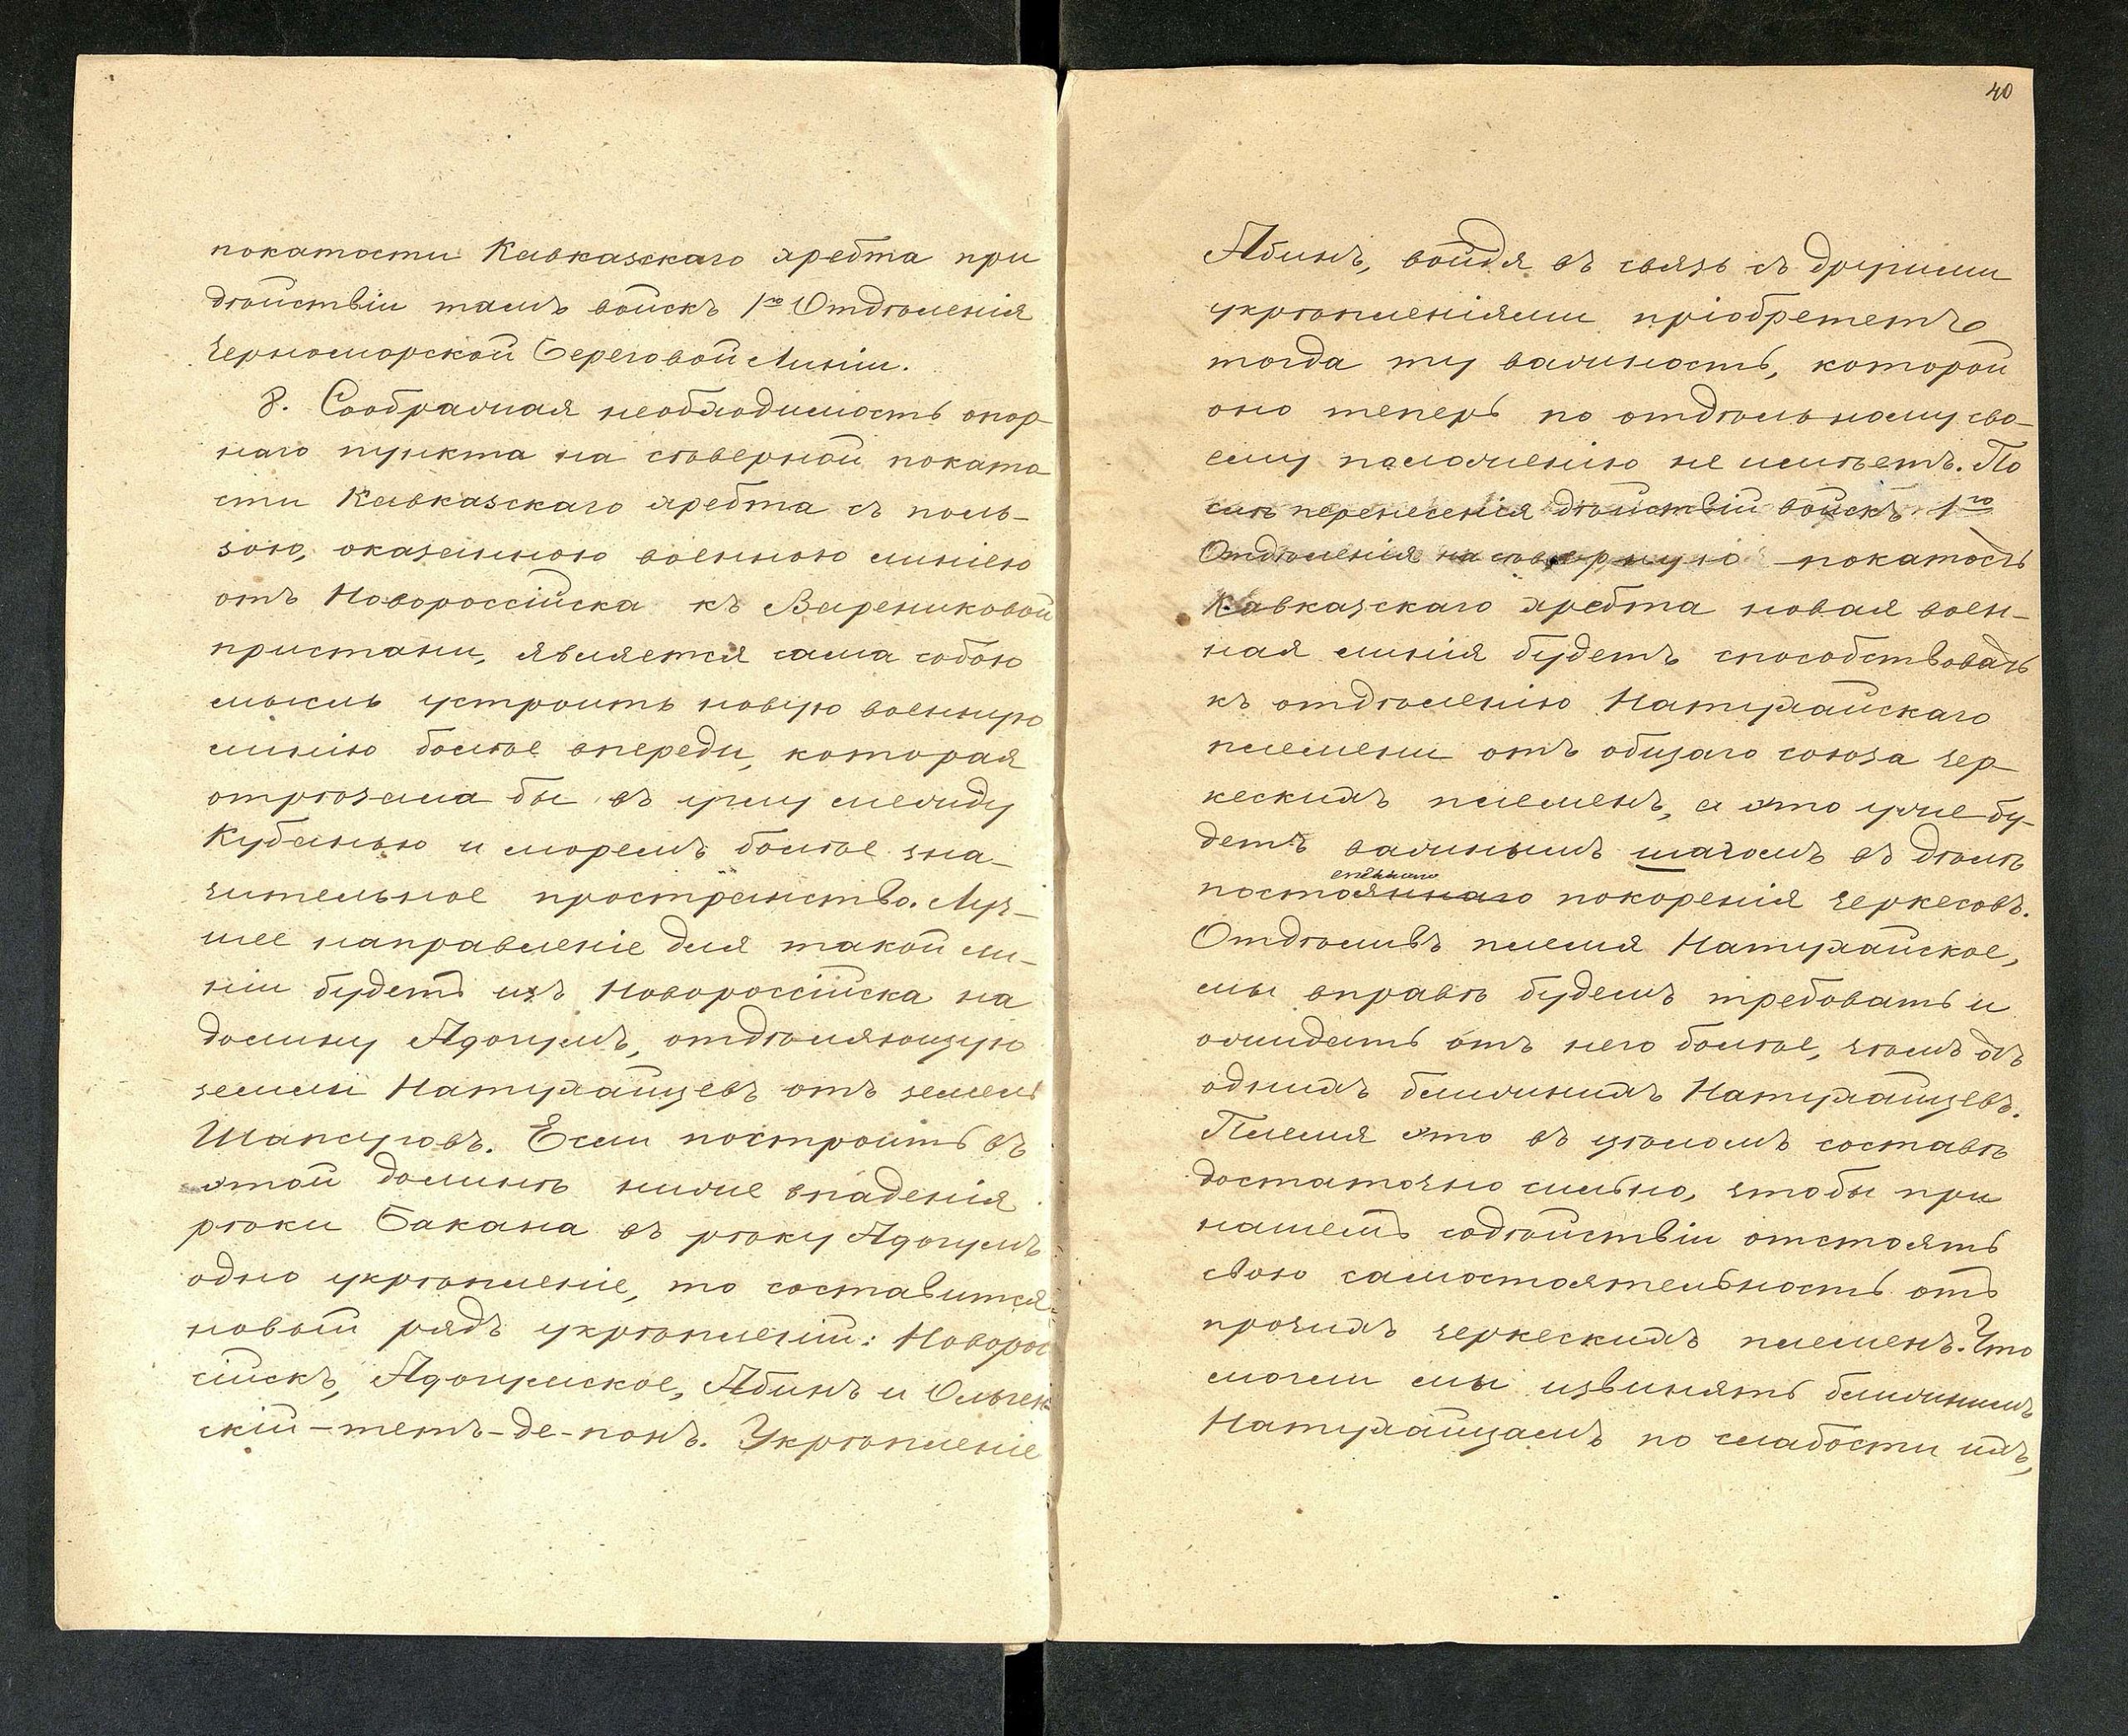 покатости Кавказскаго хребта при
дѣйствіи тамъ войскъ 1го Отдѣленія
Черноморской Береговой Линіи.
8. Соображая необходимость опор-
наго пункта на сѣверной покато
сти Кавказскаго хребта съ поль-
зою, оказанною военною линіею
отъ Новороссійска къ Варениковой
пристани, является сама собою
мысль устроить новую военную
линію болѣе впереди, которая
отрѣзала бы въ углу между
Кубанью и моремъ болѣе зна-
чительное пространство. Луч-
шее направленіе для такой ли-
ніи будетъ изъ Новороссійска на
долину Адагумъ, отдѣляющую
земли Натухайцевъ отъ земель
Шапсуговъ. Если построить въ
этой долинѣ ниже впаденія
рѣки Бакана въ рѣку Адагумъ
одно укрѣпленіе, то составится
новый рядъ укрѣпленій: Новорос
сійскъ, Адагумское, Абинъ и Ольгин
скій-тетъ-де-понъ. Укрѣпленіе
40
Абинъ, войдя въ связь съ другими
укрѣпленіями пріобрететъ
тогда ту важность, которой
оно теперь по отдѣльному сво-
ему положенію не имѣетъ. По
слѣ перенесенія дѣйствій войскъ 1го
Отдѣленія на сѣверную покатость
Кавказскаго хребта новая воен-
ная линія будетъ способствовать
къ отдѣленію Натухайскаго
племени отъ общаго союза чер-
кескихъ племенъ, а это уже бу-
детъ важнымъ шагомъ въ дѣлѣ
пеннаго
постояннаго покоренія черкесовъ.
Отдѣливъ племя Натухайское,
мы вправѣ будемъ требовать и
ожидать отъ него болѣе, чѣмъ отъ
однихъ ближнихъ Натухайцевъ.
Племя это въ цѣломъ составѣ
достаточно сильно, чтобы при
нашемъ содѣйствіи отстоять
свою самостоятельность отъ
прочихъ черкескихъ племенъ. Что
могли мы извинять ближнимъ
Натухайцамъ по слабости ихъ,